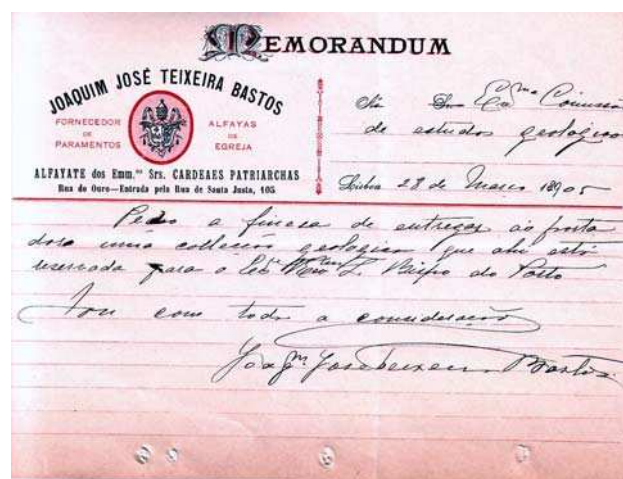 MEMORANDUM
JOAQUIM JOSÉ TEIXEIRA BASTOS
FORNECEDOR DE PARAMENTOS
ALFAYAS DE EGREJA
ALFAYATE dos Emm.ᵒˢ Srs. CARDEAES PATRIARCHAS
Rua do Ouro—Entrada pela Rua de Santa Justa, 105
Exᵐᵃ Comissão
de estudos geologicos
Lisboa 28 de Março 1905
Peço a fineza de entregar ao porta
dor uma collecção geologica que ahi está
reservada para o Bispo do Porto
Sou com toda a consideração
Joaqᵐ José Teixeira Bastos